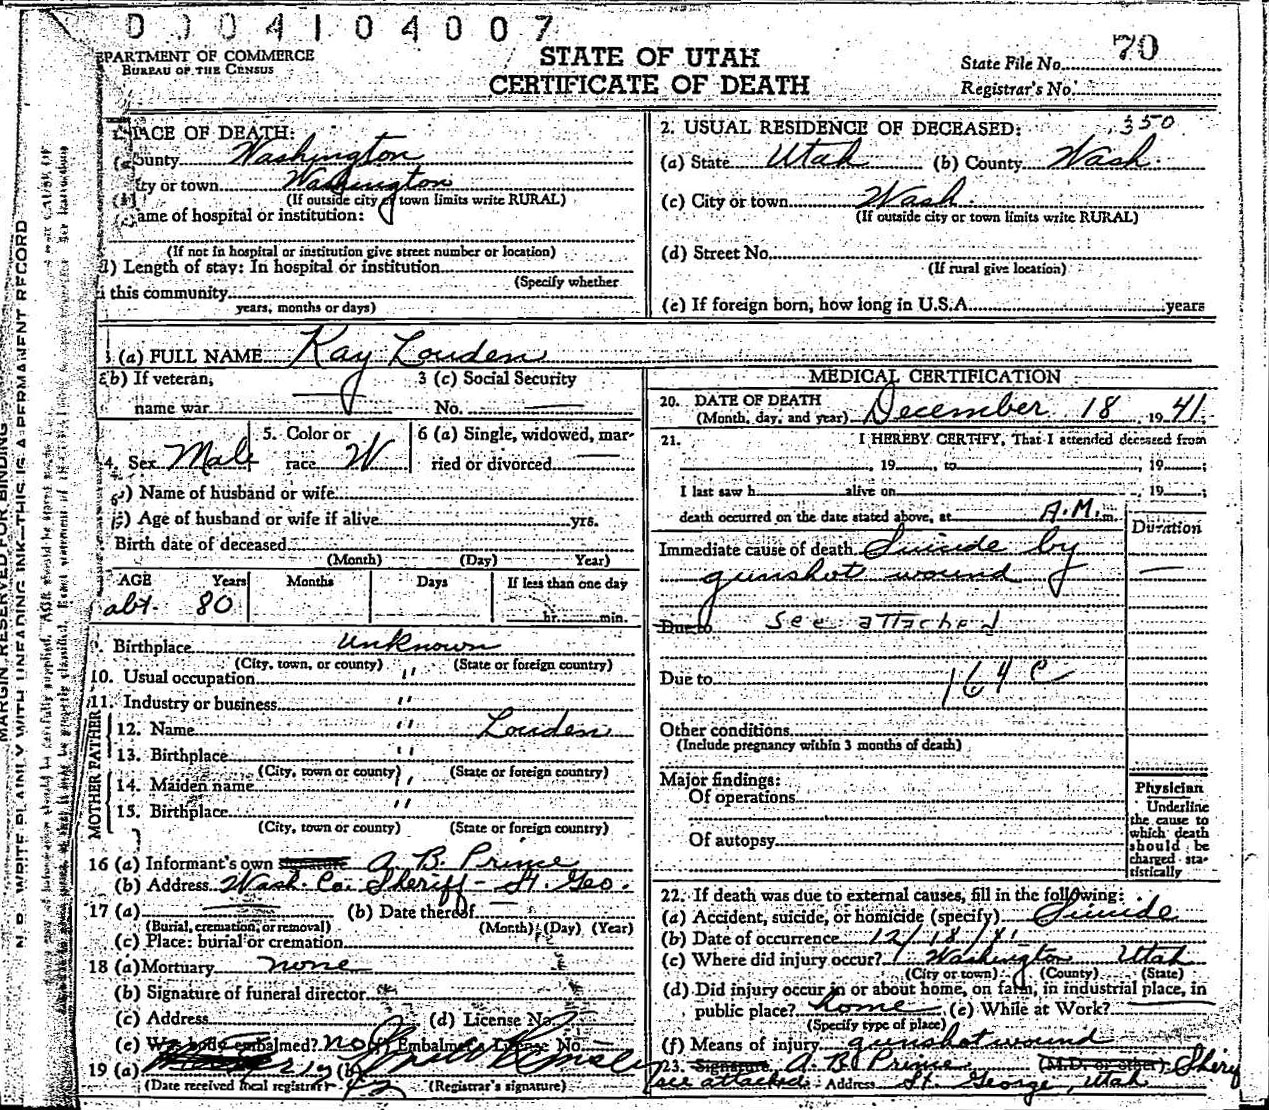 D 0 0 4 1 0 4 0 0 7
70
PARTMENT OF COMMERCE
BUREAU OF THE CENSUS
STATE OF UTAH
CERTIFICATE OF DEATH
State File No.
Registrar's No.
PLACE OF DEATH:
(a) ounty Washington
ity or town Washington
(If outside city or town limits write RURAL)
ame of hospital or institution:
(If not in hospital or institution give street number or location)
) Length of stay: In hospital or institution
(Specify whether
this community
years, months or days)
2. USUAL RESIDENCE OF DECEASED: 350
(a) State Utah (b) County Wash.
(c) City or town Wash.
(If outside city or town limits write RURAL)
(d) Street No.
(If rural give location)
(e) If foreign born, how long in U.S.A. years
3 (a) FULL NAME Kay Louden
(b) If veteran, 3 (c) Social Security
name war — No. —
4. Sex Male 5. Color or race W 6 (a) Single, widowed, married or divorced —
) Name of husband or wife
) Age of husband or wife if alive yrs.
Birth date of deceased
(Month) (Day) Year)
AGE Years Months Days If less than one day
abt. 80 hr. min.
9. Birthplace unknown
(City, town, or county) (State or foreign country)
10. Usual occupation "
11. Industry or business "
FATHER
12. Name " Louden
13. Birthplace "
(City, town or county) (State or foreign country)
MOTHER
14. Maiden name "
15. Birthplace "
(City, town or county) (State or foreign country)
16 (a) Informant's own signature A. B. Prince
(b) Address Wash. Co. Sheriff - St. Geo.
17 (a) (b) Date thereof
(Burial, cremation, or removal) (Month) (Day) (Year)
(c) Place: burial or cremation
18 (a) Mortuary none
(b) Signature of funeral director
(c) Address (d) License No.
(e) Was body embalmed? no (f) Embalmer's License No.
19 (a) (b)
(Date received local registrar) (Registrar's signature)
MEDICAL CERTIFICATION
20. DATE OF DEATH
(Month, day, and year) December 18, 1941.
21. I HEREBY CERTIFY, That I attended deceased from
, 19 , to , 19 ;
I last saw h alive on , 19 ;
death occurred on the date stated above, at A.M. m.
Duration
Immediate cause of death Suicide by —
gunshot wound
Due to See attached
Due to 164 C
Other conditions
(Include pregnancy within 3 months of death)
Major findings:
Of operations
Of autopsy
Physician
Underline
the cause to
which death
should be
charged sta-
tistically
22. If death was due to external causes, fill in the following:
(a) Accident, suicide, or homicide (specify) Suicide
(b) Date of occurrence 12/18/41
(c) Where did injury occur? Washington Utah
(City or town) (County) (State)
(d) Did injury occur in or about home, on farm, in industrial place, in
public place? home (e) While at Work?
(Specify type of place)
(f) Means of injury gunshot wound
23. Signature A. B. Prince (M.D. or other) Sherif
see attached Address St. George, Utah
MARGIN RESERVED FOR BINDING
N. B. WRITE PLAINLY WITH UNFADING INK—THIS IS A PERMANENT RECORD